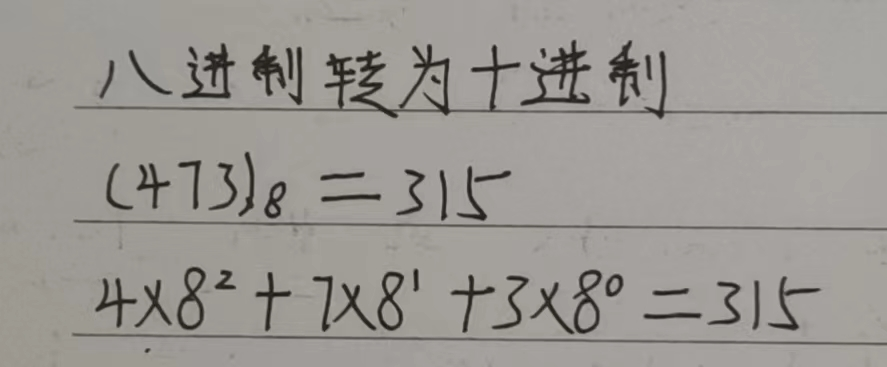 八进制转为十进制
(473)₈ = 315
4×8² + 7×8¹ + 3×8⁰ = 315